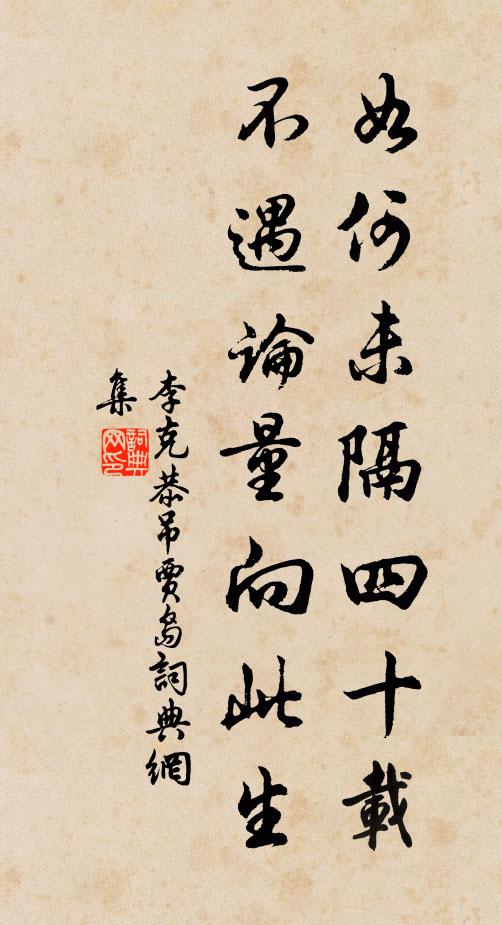 如何未隔四十載
不遇論量向此生
李克恭吊賈島詞典網
集
詞典網印